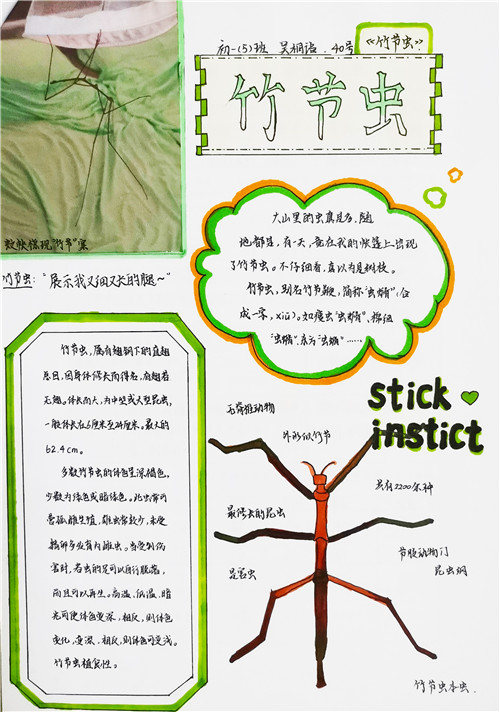 初一(5)班 吴桐语 40号
《竹节虫》
竹节虫
蚊帐惊现"竹节"案
竹节虫:"展示我又细又长的腿~"
大山里的虫真是多,随
地都是,有一天,竟在我的帐篷上出现
了竹节虫。不仔细看,真以为是树枝。
竹节虫,别名竹节鞭,简称
成一零,xiū)。
stick
instict
无脊椎动物
外形似竹节
具有2200余种
最修长的昆虫
是害虫
节肢动物门
昆虫纲
竹节虫本虫.
竹节虫,属有翅钢下的直翅
总目,因身体修长而得名,有翅或
无翅。体长而大,为中型或大型昆虫,
一般体长在6厘米至24厘米。最大的
62.4cm。
多数竹节虫的体色呈深褐色,
少数为绿色或暗绿色。此虫常可
营孤雌生殖,雄虫常较少,未受
精卵多发育为雌虫。当受到伤
害时,若虫的足可以自行脱落,
而且可以再生。高温、低温、暗
光可使体色变深,相反,则体色
变化,变深,相反,则体色可变浅。
竹节虫植食性。